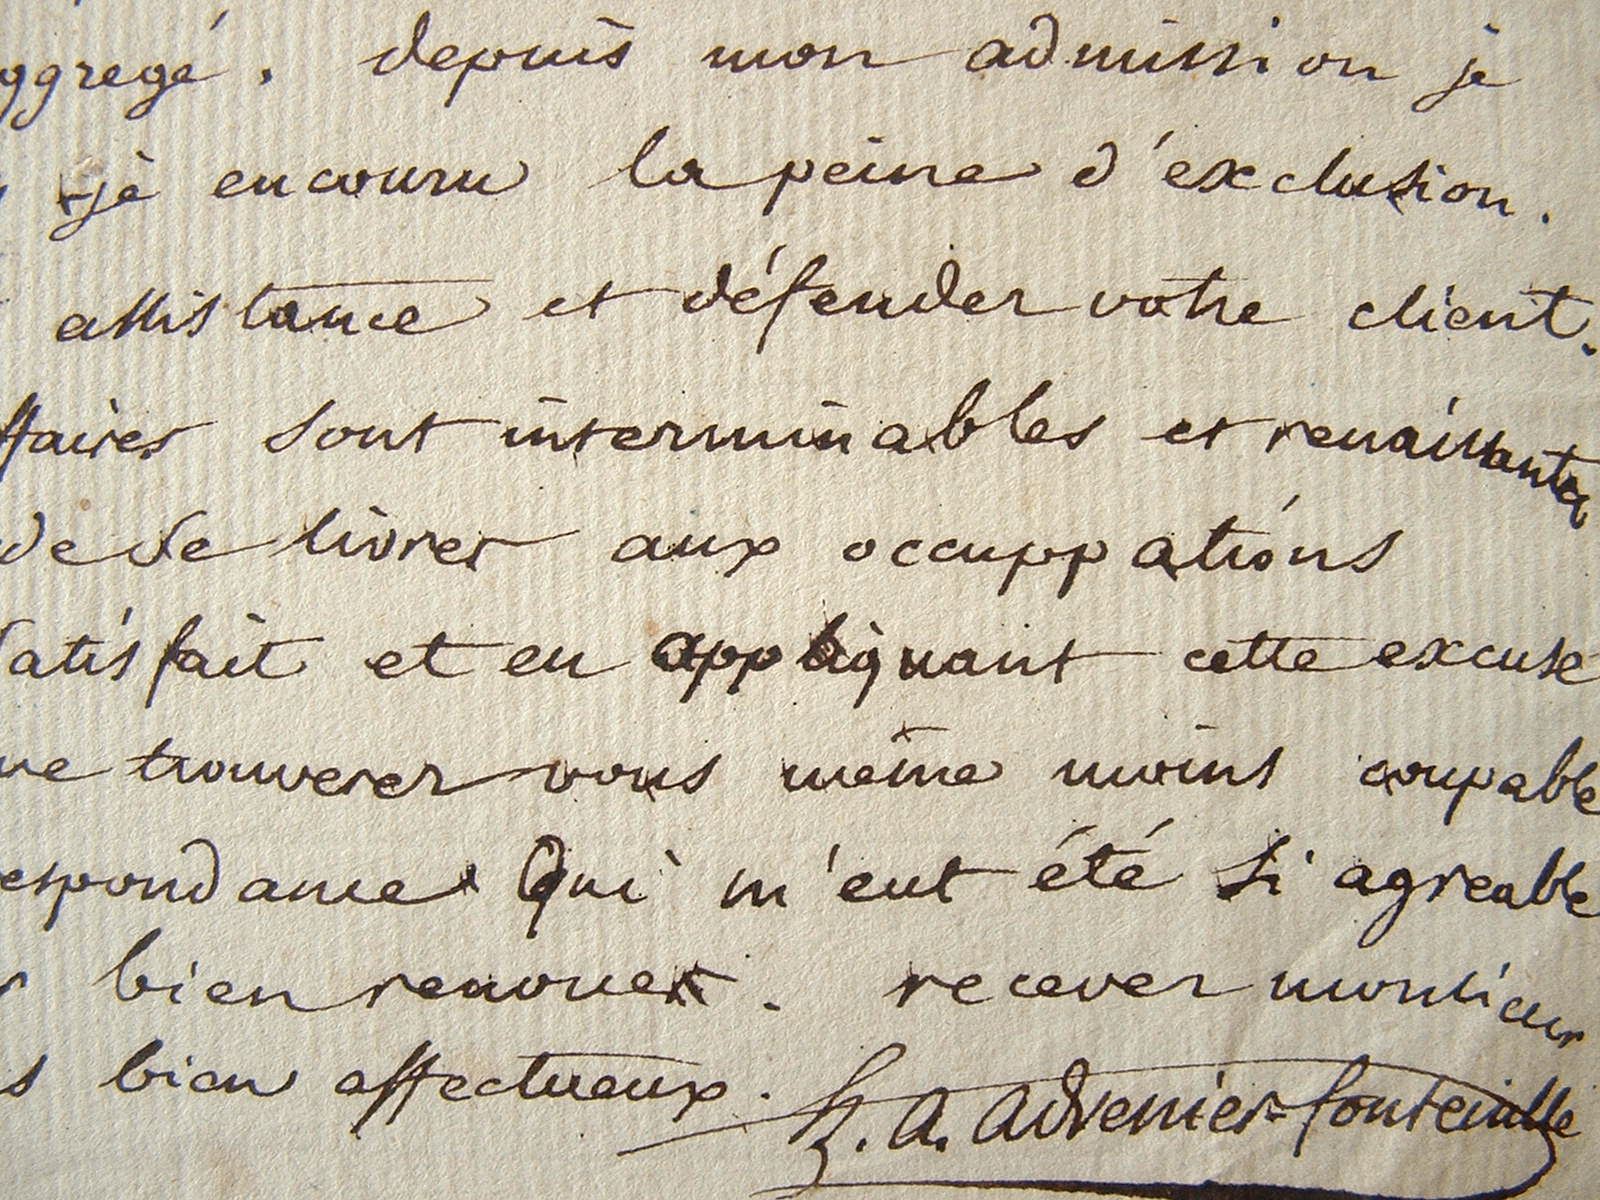 ggregé. depuis mon admission je
-je encouru la peine d'exclusion.
assistance et défender votre client.
ffaires sont interminables et renaissantes
de se livrer aux occuppations
satisfait et en appliquant cette excuse
ue trouverer vous même moins coupable
espondance qui m'eut été si agreable
r bien renouer. recever monsieur
s bien affectueux.
h. A. Advenier-fonteinille